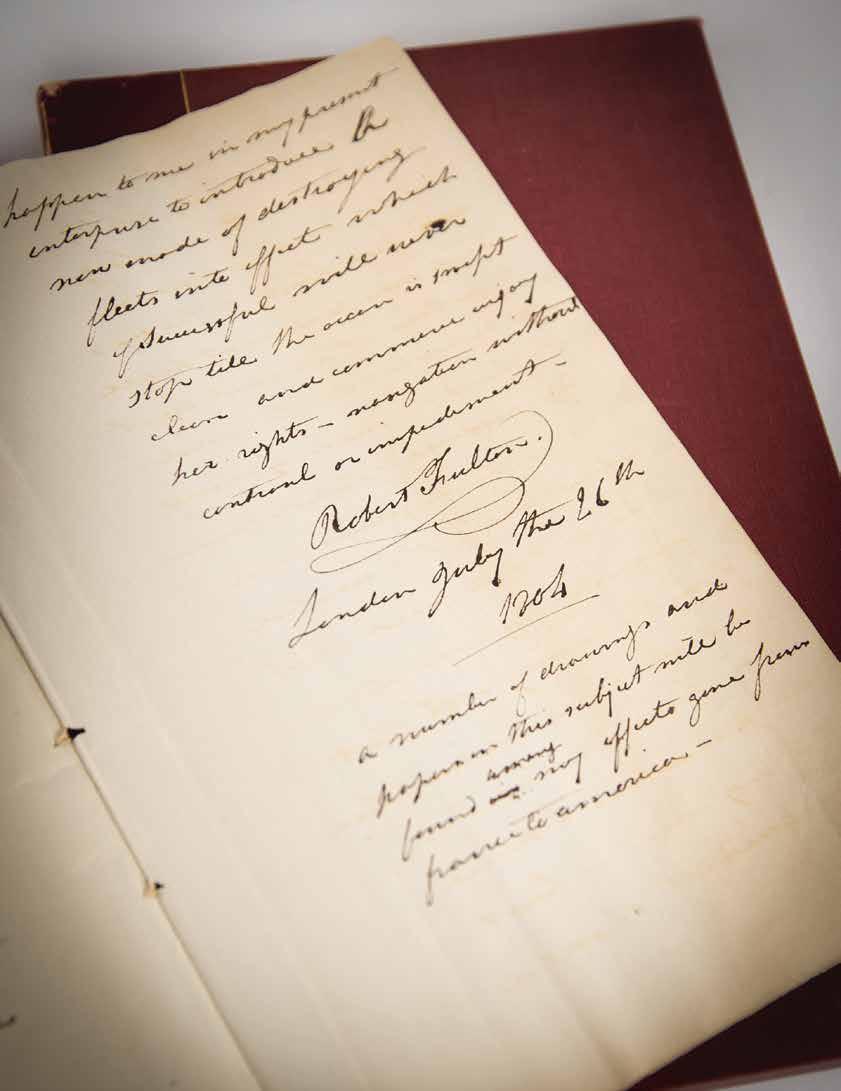 happen to me in my present
enterprise to introduce a
new mode of destroying
fleets into effect which
if successful will never
stop till the ocean is swept
clean and commerce enjoy
her rights – navigation without
controul or impediment –
Robert Fulton.
London July the 26th
1804
a number of drawings and
papers on this subject will be
found among my effects gone from
france to america –